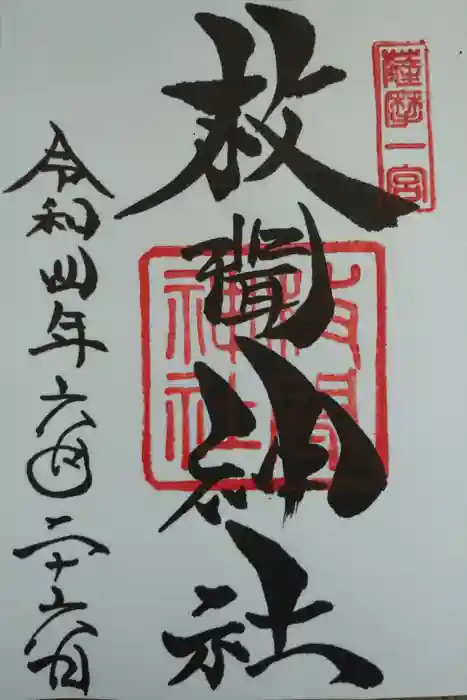 薩摩一宮
枚聞神社
枚聞神社
令和四年六月二十六日